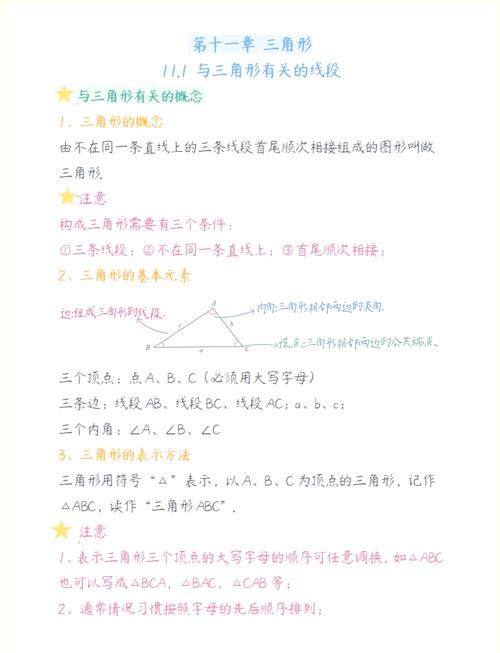 第十一章 三角形
11.1 与三角形有关的线段
与三角形有关的概念
1、三角形的概念
由不在同一条直线上的三条线段首尾顺次相接组成的图形叫做
三角形.
注意
构成三角形需要有三个条件：
①三条线段；②不在同一条直线上；③首尾顺次相接；
2、三角形的基本元素
边:组成三角形的线段.
内角:三角形相邻两边的夹角.
顶点:三角形相邻两边的公共端点.
A
c
b
B
a
C
三个顶点：点A、B、C（必须用大写字母）
三条边：线段AB、线段BC、线段AC；a、b、c；
三个内角：∠A、∠B、∠C
3、三角形的表示方法
三角形用符号“△”表示，以A、B、C为顶点的三角形，记作
△ABC，读作“三角形ABC”.
注意
1、表示三角形三个顶点的大写字母的顺序可任意调换，如△ABC
也可以写成△BCA，△BAC，△CAB等；
2、通常情况习惯按照字母的先后顺序排列；